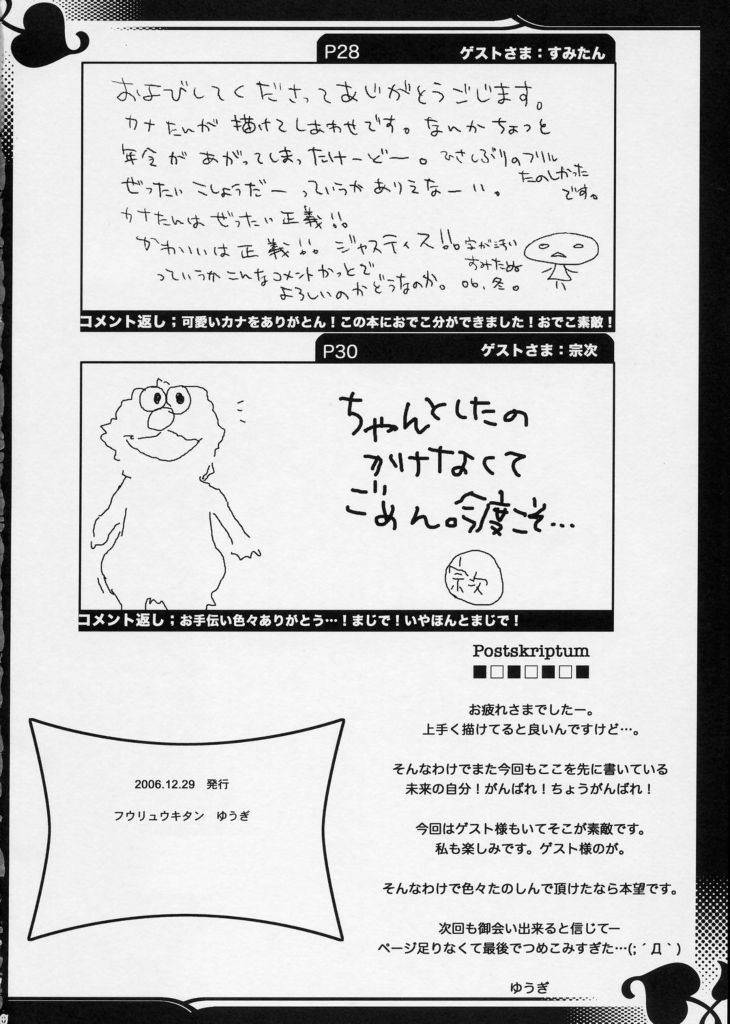 P28 ゲストさま：すみたん
およびしてくださってありがとうごじます。
カナたんが描けてしあわせです。なんかちょっと
年令があがってしまったけーどー。ひさしぶりのフリル
たのしかった
です。
ぜったいこしょうだーっていうかありえなーい。
カナたんはぜったい正義!!
かわいいは正義!! ジャスティス!!。
字が汚い
すみたぬ
っていうかこんなコメントかっとで
よろしいのかどうなのか。 06.冬。
コメント返し；可愛いカナをありがとん！この本におでこ分ができました！おでこ素敵！
P30 ゲストさま：宗次
ちゃんとしたの
かけなくて
ごめん。今度こそ…
宗次
コメント返し；お手伝い色々ありがとう…！まじで！いやほんとまじで！
Postskriptum
お疲れさまでしたー。
上手く描けてると良いんですけど…。
そんなわけでまた今回もここを先に書いている
未来の自分！がんばれ！ちょうがんばれ！
今回はゲスト様もいてそこが素敵です。
私も楽しみです。ゲスト様のが。
そんなわけで色々たのしんで頂けたなら本望です。
次回も御会い出来ると信じてー
ページ足りなくて最後でつめこみすぎた…(;´Д｀)
ゆうぎ
2006.12.29 発行
フウリュウキタン ゆうぎ